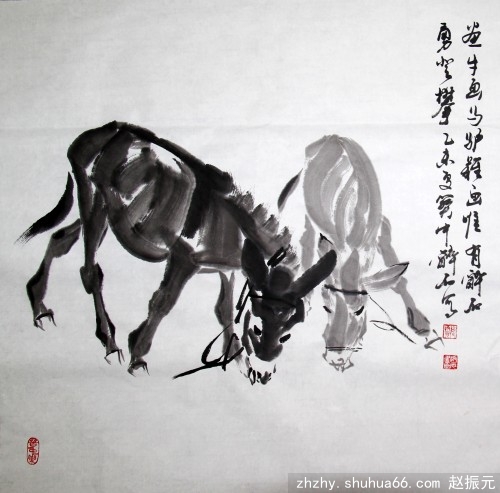 画牛画马驴难画惟有石
勇登攀乙未夏中石写
zhzhy.shuhua66.com 赵振元